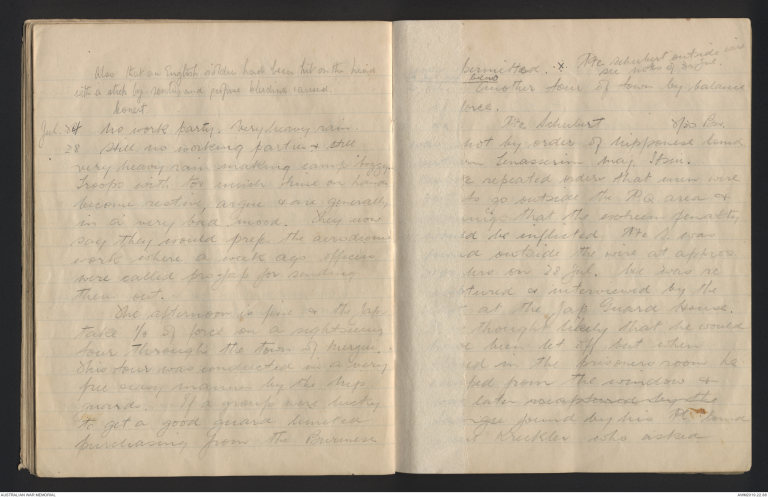 Also that an English soldier had been hit on the head
with a stick by sentry and profuse bleeding caused.
Jul. 27 No work party. Very heavy rain.
28 Still no working parties & still
very heavy rain making camp boggy.
Troops with too much time on hands
become restive, argue & are generally
in a very bad mood. They now
say they would prefer the aerodrome
work where a week ago officers
were called pro Jap for sending
them out.
The afternoon is fine & the Japs
take ½ of force on a sightseeing
tour through the town of Mergui.
This tour was conducted in a very
free easy manner by the Nip
guard. If a group were lucky
to get a good guard limited
purchasing from the Burmese
permitted. x Pte Schubert outside wire
see notes of
being
Another tour of town by balance
force.
Pte Schubert
shot by order of Nipponese Comd
in Tenasserim Maj. Itsui.
repeated orders that men were
to go outside the P.O. area &
that the extreme penalty
be inflicted. Pte S. was
outside the wire at approx
hrs on 28 Jul. He was re
& interviewed by the
at the Jap Guard House.
thought likely that he would
been let off but when
in the prisoners room he
from the window &
later recaptured by the
found by his
Kreckler who asked
AUSTRALIAN WAR MEMORIAL
AWM2019.22.68